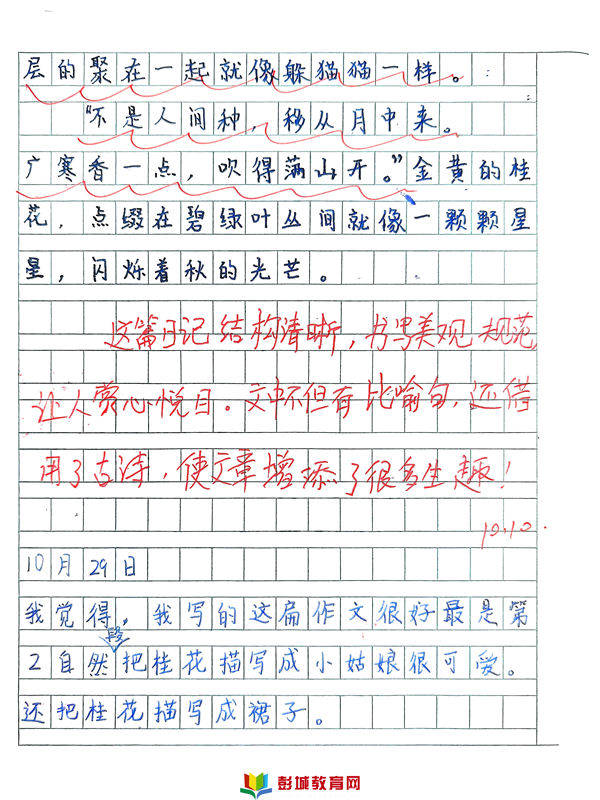 层的聚在一起就像躲猫猫一样。
“不是人间种,移从月中来。
广寒香一点,吹得满山开。”金黄的桂
花,点缀在碧绿叶丛间就像一颗颗星
星,闪烁着秋的光芒。
这篇日记结构清晰,书写美观规范,
让人赏心悦目。文中不但有比喻句,还借
用了古诗,使文章增添了很多生趣!
10.10.
10月29日
我觉得,我写的这扁作文很好最是第
2自然段把桂花描写成小姑娘很可爱。
还把桂花描写成裙子。
彭城教育网